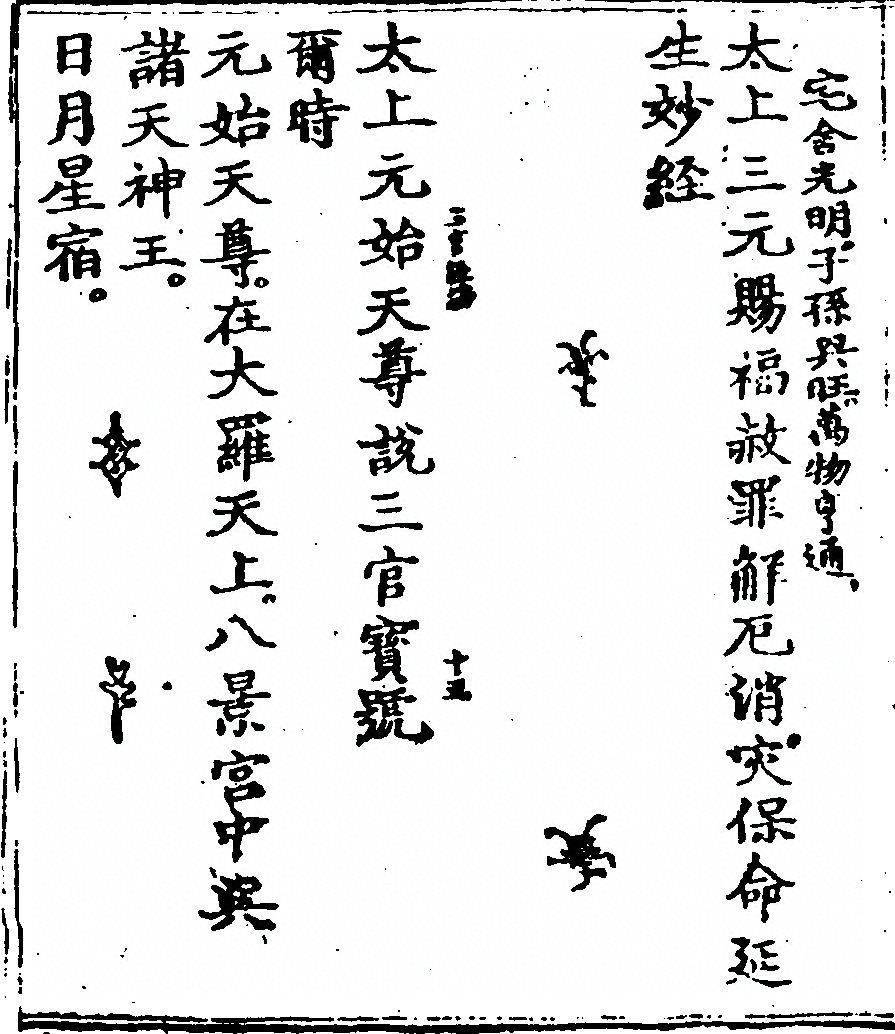 宅舍光明。子孫興旺。萬物亨通。
太上三元賜福赦罪解厄消灾保命延
生妙經
三官經
十五
太上元始天尊說三官寶號
爾時
元始天尊。在大羅天上。八景宮中與
諸天神王。
日月星宿。